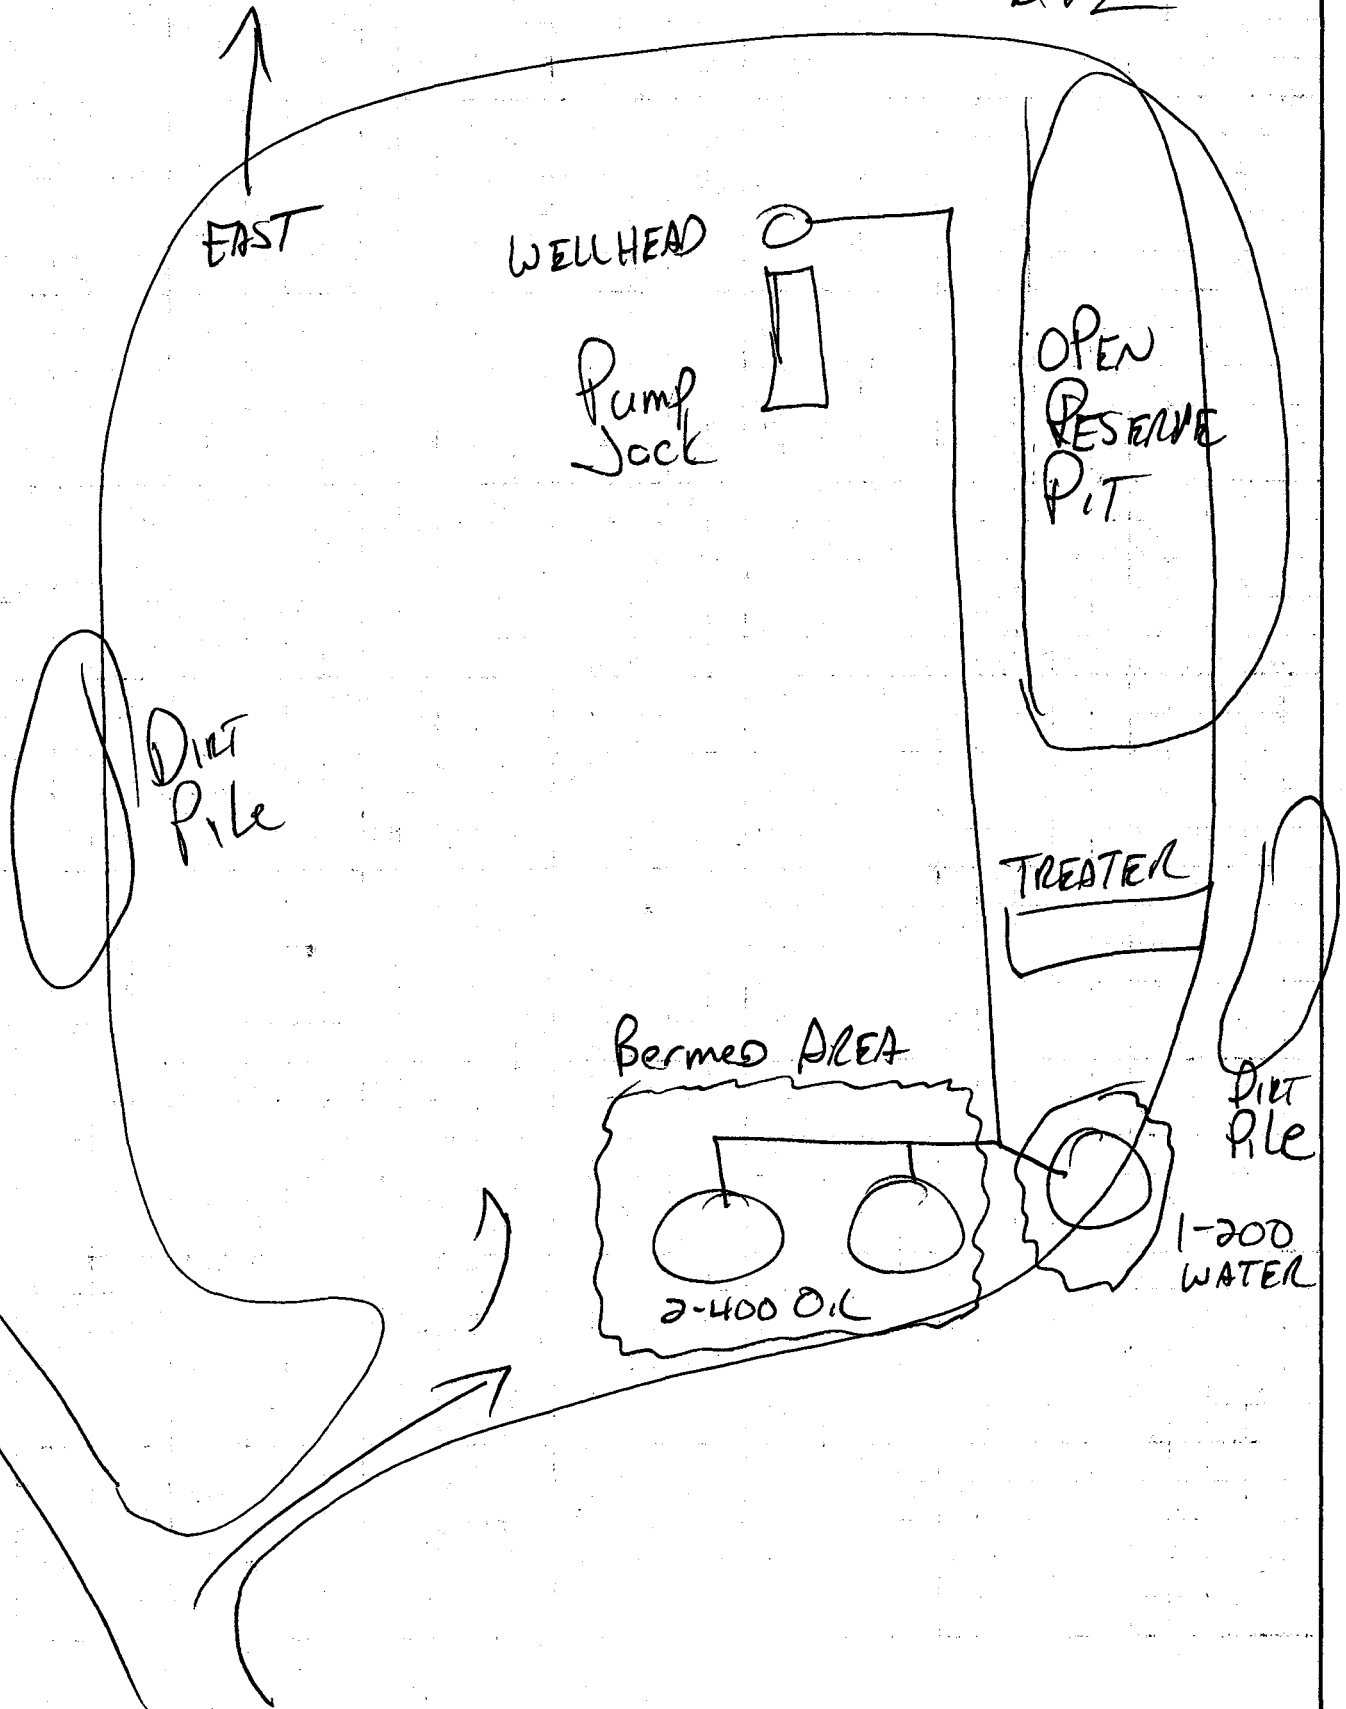 EAST
WELLHEAD
Pump
Jack
OPEN
RESERVE
PIT
DIRT
PiLe
TREATER
Bermed AREA
DIRT
PiLe
2-400 OiL
1-200
WATER